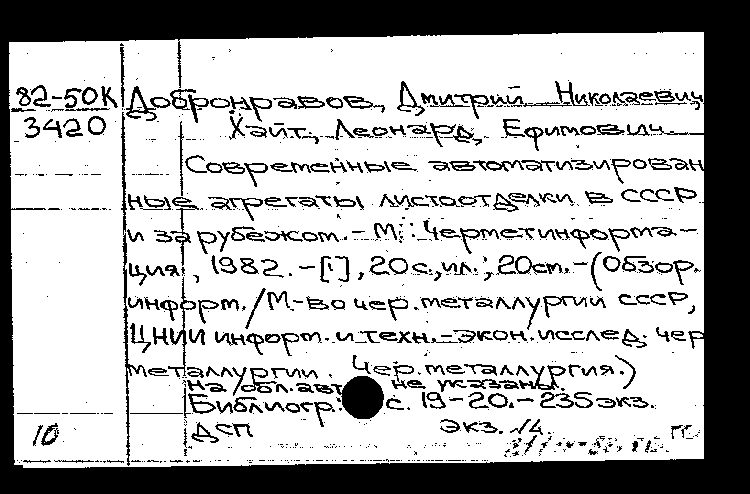 82-50К Добронравов, Дмитрий Николаевич
3420 Хайт, Леонард Ефимович
Современные автоматизирован
ные агрегаты листоотделки в СССР
и за рубежом. - М.: Черметинформа-
ция, 1982. - [1], 20 с., ил.; 20 см. - (Обзор.
информ. / М-во чер. металлургии СССР,
ЦНИИ информ. и техн.-экон. исслед. чер
металлургии. Чер. металлургия.)
на обл. авт не указаны.
Библиогр.: с. 19-20. - 235 экз.
10 ДСП экз. 14